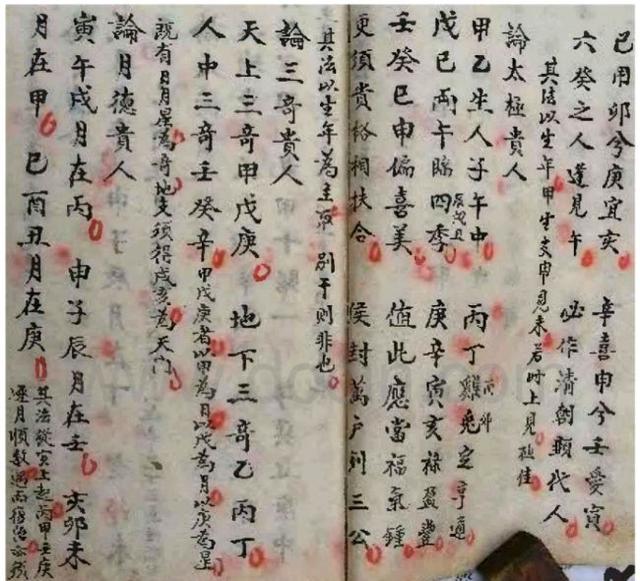 己用卯兮庚宜亥 辛喜申兮壬愛寅
六癸之人逢見午 必作清朝顯代人
其法以生年甲生支申見未若時上見極佳
論太極貴人
甲乙生人子午中 丙丁雞兔定亨通 酉卯
戊己兩午臨四季 辰戌丑 庚辛寅亥祿盈豐
壬癸巳申偏喜美 值此應當福氣鍾
更須貴格相扶合 候封萬戶列三公
其法以生年為主取別干則非也
論三奇貴人
天上三奇甲戊庚 地下三奇乙丙丁
人中三奇壬癸辛 甲戊庚者以甲為日以戊為月以庚為星
既有日月星為奇地支須得戌亥為天門
論月德貴人
寅午戌月在丙 申子辰月在壬 亥卯未
月在甲 巳酉丑月在庚 其法從寅上起丙甲壬庚
逐月順數週而復始